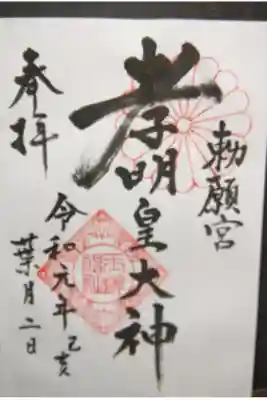 勅願宮
孝明皇大神
奉拝
令和元年己亥
葉月二日